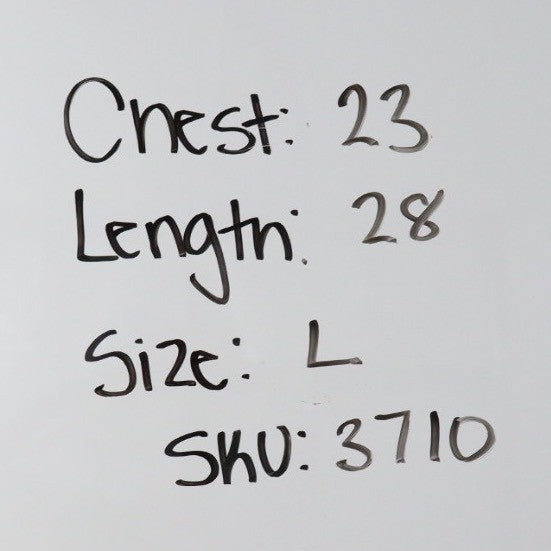 Chest: 23
Length: 28
Size: L
SKU: 3710